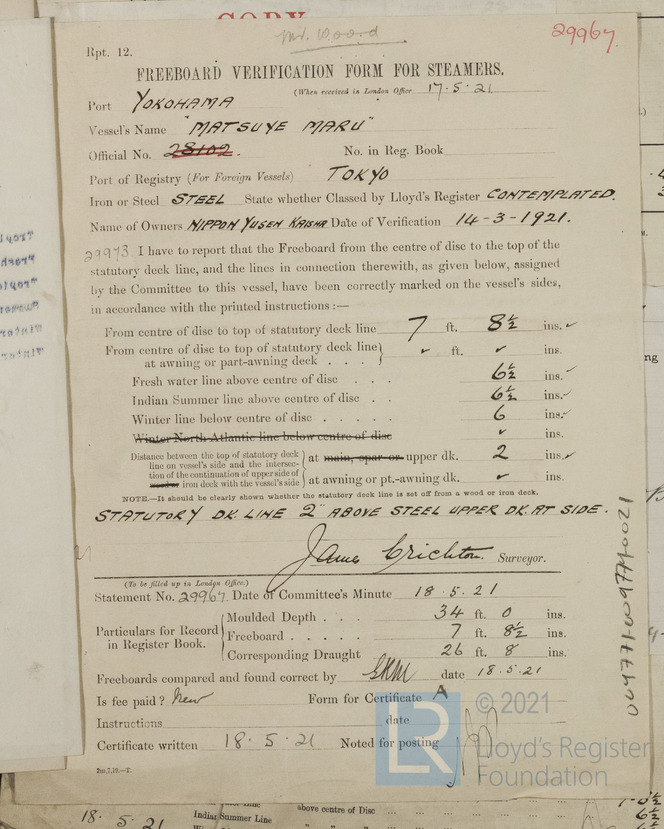 COPY
Mr. Wood
29967.
Rpt. 12.
FREEBOARD VERIFICATION FORM FOR STEAMERS.
(When received in London Office 17.5.21
Port YOKOHAMA
Vessel's Name "MATSUYE MARU"
Official No. 28102. No. in Reg. Book
Port of Registry (For Foreign Vessels) TOKYO
Iron or Steel STEEL State whether Classed by Lloyd's Register CONTEMPLATED.
Name of Owners NIPPON YUSEN KAISHA Date of Verification 14-3-1921.
29973 I have to report that the Freeboard from the centre of disc to the top of the
statutory deck line, and the lines in connection therewith, as given below, assigned
by the Committee to this vessel, have been correctly marked on the vessel's sides,
in accordance with the printed instructions :—
From centre of disc to top of statutory deck line 7 ft. 8½ ins. ✓
From centre of disc to top of statutory deck line
at awning or part-awning deck . . . } ✓ ft. ✓ ins.
Fresh water line above centre of disc . . . 6½ ins. ✓
Indian Summer line above centre of disc . . 6½ ins. ✓
Winter line below centre of disc . . . . . 6 ins. ✓
Winter North Atlantic line below centre of disc ✓ ins.
Distance between the top of statutory deck
line on vessel's side and the intersec- } at main, spar or upper dk. 2 ins. ✓
tion of the continuation of upper side of
iron deck with the vessel's side } at awning or pt.-awning dk. ✓ ins.
NOTE.—It should be clearly shown whether the statutory deck line is set off from a wood or iron deck.
STATUTORY DK. LINE 2" ABOVE STEEL UPPER DK. AT SIDE.
James Crichton. Surveyor.
(To be filled up in London Office.)
Statement No. 29967 Date of Committee's Minute 18.5.21
Particulars for Record
in Register Book.
Moulded Depth . . . 34 ft. 0 ins.
Freeboard . . . . . 7 ft. 8½ ins.
Corresponding Draught 26 ft. 8 ins.
Freeboards compared and found correct by date 18.5.21
Is fee paid? New Form for Certificate A
Instructions date
Certificate written 18.5.21 Noted for posting
2m,7,19.—T.
© 2021
LR
Lloyd's Register
Foundation
18.5.21 Indian Summer Line
above centre of Disc